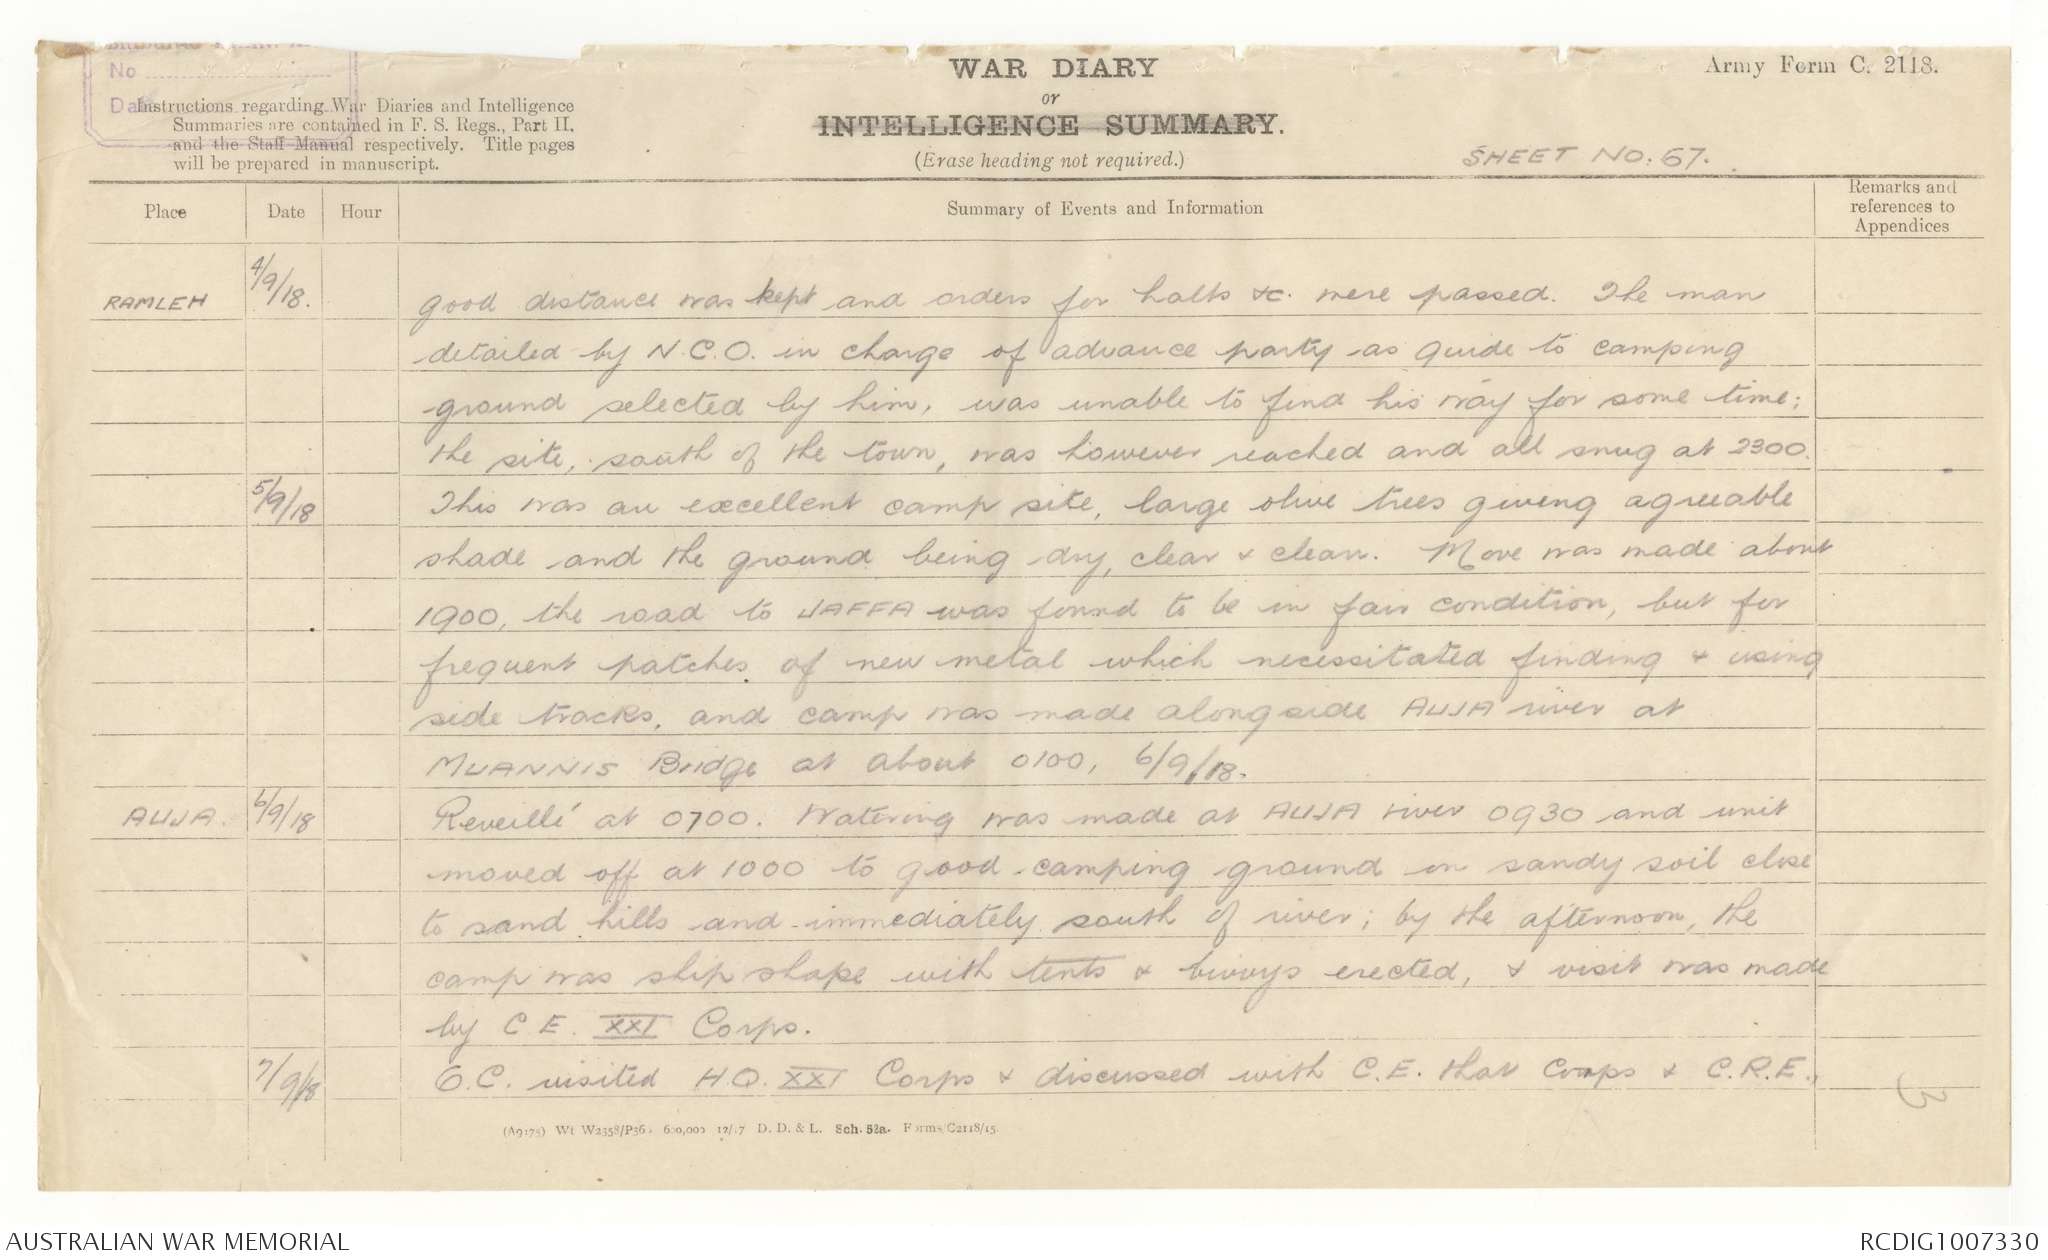 No
Date
WAR DIARY
or
INTELLIGENCE SUMMARY.
(Erase heading not required.)
Army Form C. 2118.
Instructions regarding War Diaries and Intelligence
Summaries are contained in F. S. Regs., Part II.
and the Staff Manual respectively. Title pages
will be prepared in manuscript.
SHEET NO: 67.
Place Date Hour Summary of Events and Information Remarks and
references to
Appendices
RAMLEH 4/9/18. good distance was kept and orders for halts &c. were passed. The man
detailed by N.C.O. in charge of advance party as guide to camping
ground selected by him, was unable to find his way for some time;
the site, south of the town, was however reached and all snug at 2300.
5/9/18 This was an excellent camp site, large olive trees giving agreeable
shade and the ground being dry, clear & clean. Move was made about
1900, the road to JAFFA was found to be in fair condition, but for
frequent patches of new metal which necessitated finding & using
side tracks, and camp was made alongside AUJA river at
MUANNIS Bridge at about 0100, 6/9/18.
AUJA. 6/9/18 Reveillé at 0700. Watering was made at AUJA river 0930 and unit
moved off at 1000 to good camping ground on sandy soil close
to sand hills and immediately south of river; by the afternoon, the
camp was ship shape with tents & bivvys erected, & visit was made
by C.E. XXI Corps.
7/9/18 O.C. visited H.Q. XXI Corps & discussed with C.E. that Corps & C.R.E.,
3
D. D. & L. Sch. 52a. Forms/C2118/15.
AUSTRALIAN WAR MEMORIAL
RCDIG1007330